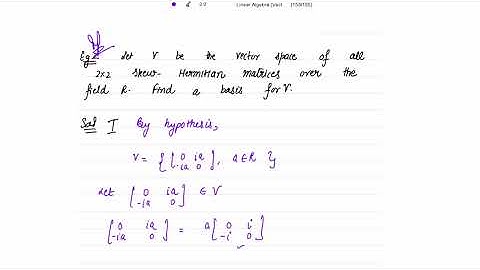 Linear Algebra (Vast) [158/188]
Eg:- Let V be the vector space of all
2x2 skew-Hermitian matrices over the
field R. Find a basis for V.
Sol I By hypothesis,
V = { [0 ia
-ia 0], a∈R }
Let [0 ia
-ia 0] ∈ V
[0 ia
-ia 0] = a[0 i
-i 0]